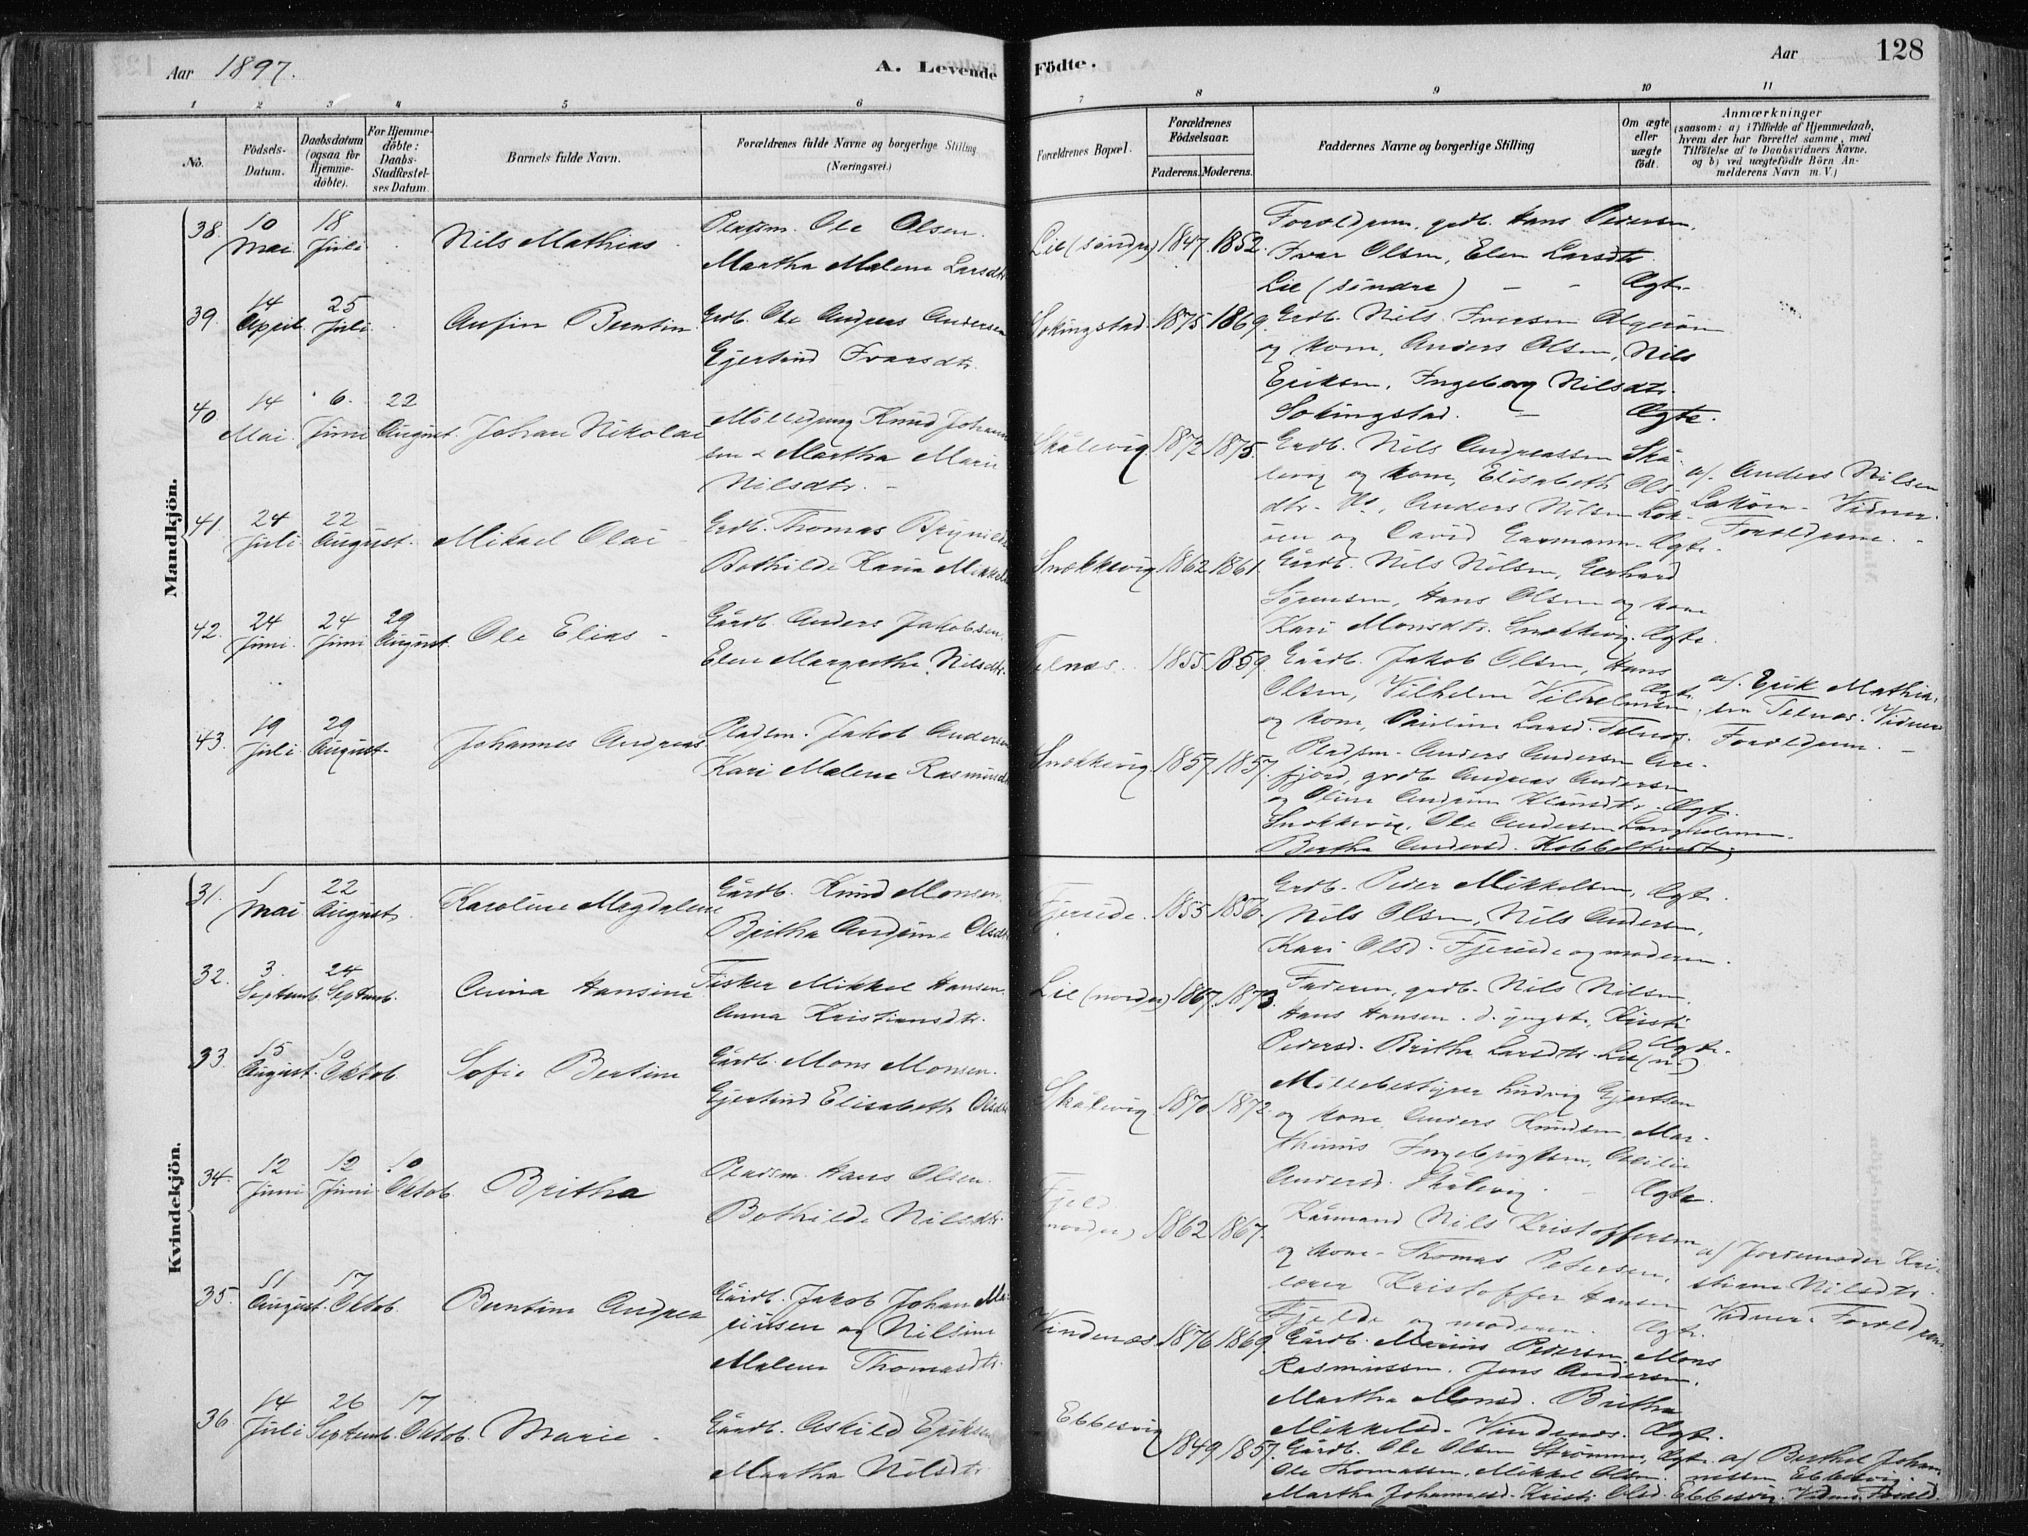 Aar 1897.
A. Levende Födte.
Aar
128
1 2 3 4 5 6 7 8 9 10 11
No.
Födsels-Datum.
Daabsdatum (ogsaa for Hjemme-döbte).
For Hjemme-döbte: Daabs-Stadfæstel-ses Datum.
Barnets fulde Navn.
Forældrenes fulde Navne og borgerlige Stilling (Næringsvei.)
Forældrenes Bopæl.
Forældrenes Födselsaar.
Faderens. Moderens.
Faddernes Navne og borgerlige Stilling
Om ægte eller uægte födt.
Anmærkninger
(saasom: a) i Tilfælde af Hjemmedaab, hvem der har forrettet samme, med Tilföielse af to Daabsvidners Navne, og b) ved uægtefödte Börn An-melderens Navn m. V.)
Mandkjön.
38. 10 Mai 18 Juli Nils Mathias
Pladsm. Ole Olsen.
Martha Malene Larsdtr
Lie (søndre) 1847. 1852.
Forældrene, grdb. Hans Pedersen,
Ivar Olsen, Elen Larsdtr
Lie (søndre) - - Ægte
39. 14 April 25 Juli Bentin
Grdb. Ole Andreas Andersen
Gjertrud Ivarsdtr.
Sokingstad. 1875. 1869.
Grdb. Nils Iversen Algerøen
og kone, Anders Olsen, Nils
Eriksen, Ingeborg Nilsdtr.
Sokingstad. - Ægte.
40 14 Mai. 6. Juni 22 August. Johan Nikolai
Knud Johann-
sen & Martha Marie
Nilsdtr. -
Skålevig. 1872. 1875.
Grdb. Nils Andreassen Skå-
levig og kone, Elisabeth Ols-
dtr. Anders Nilsen Lok-
øen og David Garmann. Ægte.
a/. Anders Nilsen
Løkøen - Vidner.
Forældrene. -
41. 24 Juli 22 August. Mikael Olai -
Grdb. Thomas Brynilds
Bothilde Karia Mikkels
Snekkevig 1862. 1861.
Gårdb. Nils Nilsen, Gerhard
Sørensen, Hans Olsen og kone
Kari Monsdtr. Snekkevig. Ægte.
42. 24 Juni. 24 Juni 29 August. Ole Elias -
Gårdb. Anders Jakobsen.
Elen Margrethe Nilsdtr.
Telnæs. 1855. 1859.
Gårdb. Jakob Olsen, Hans
Olsen, Vilhelm Vilhelmsen, Ægte
og kone, Pauline Larsd. Telnæs.
a/. Erik Mathia-
sen Telnæs. Vidner
Forældrene. -
43. 19 Juli 29 August. Johannes Andreas
Pladsm. Jakob Andersen
Kari Malene Rasmusdtr
Snekkevig 1857. 1857.
Pladsm. Anders Andersen Are-
fjord, grdb. Andreas Andersen
og Oline Klausdtr. Ægt.
Snekkevig, Ole Andersen Langholmen.
Bertha Andersd. Kobbeltvedt
Kvindekjön.
31. 1 Mai 22 August. Karoline Magdalene
Gårdb. Knud Monsen.
Britha Andrine Olsdtr
Fjereide. 1855. 1856.
Grdb. Peder Mikkelsen, Ægt.
Nils Olsen, Nils Andersen,
Kari Olsd. Fjereide og moderen.
32. 3. Septemb. 24 Septemb. Anna Hansine
Fisker Mikkel Hansen.
Anna Kristiansdtr.
Lie (nordre) 1867. 1873.
Faderen, grdb. Nils Nilsen.
Hans Hansen. d. yngste, Kirsti
Pedersd. Britha Larsdtr. Lie (n.) Ægte.
33. 15 August. 10 Oktob. Sofie Bertine
Gårdb. Mons Monsen.
Gjertrud Elisabeth Olsdtr
Skålevig 1870. 1872.
Møllebestyrer Ludvig Gjertsen
og kone Anders Knudsen, Mar-
thinus Ingebrigtsen, Cecilie
Andersd. Skålevig. - Ægte.
34. 12 Juni 12 Juni 10 Oktob Britha
Pladsm. Hans Olsen.
Bothilde Nilsdtr.
Fjeld nordre) 1862. 1867.
Kårmand Nils Kristoffersen
og kone - Thomas Petersen,
lærer Kristoffer Hansen
Fjelde og moderen. Ægt.
a/ Jordemoder Kri-
stiane Nilsdtr.
Vidner. Forældrene.
35. 11 August. 17 Oktob. Bentine Andrea
Gårdb. Jakob Johan Ma-
riusen og Nilsine
Malene Thomasdtr.
Vindenæs 1876. 1869.
Gårdb. Marius Pedersen, Mons
Rasmussen. Jens Andersen.
Martha Monsd. Britha
Mikkelsd. Vindenæs. Ægt.
36. 14 Juli 26 Septemb. 17 Oktob. Marie -
Gårdb. Askild Eriksen
Martha Nilsdtr.
Ebbesvig 1849 1857.
Gårdb. Ole Olsen Strømme, Ægt.
Ole Thomassen. Mikkel Olsen.
Martha Johannesd. Kristi Olsd. Ebbesvig.
a/ Berthel Johan-
nessen Ebbesvig.
Vidner. Foræld.